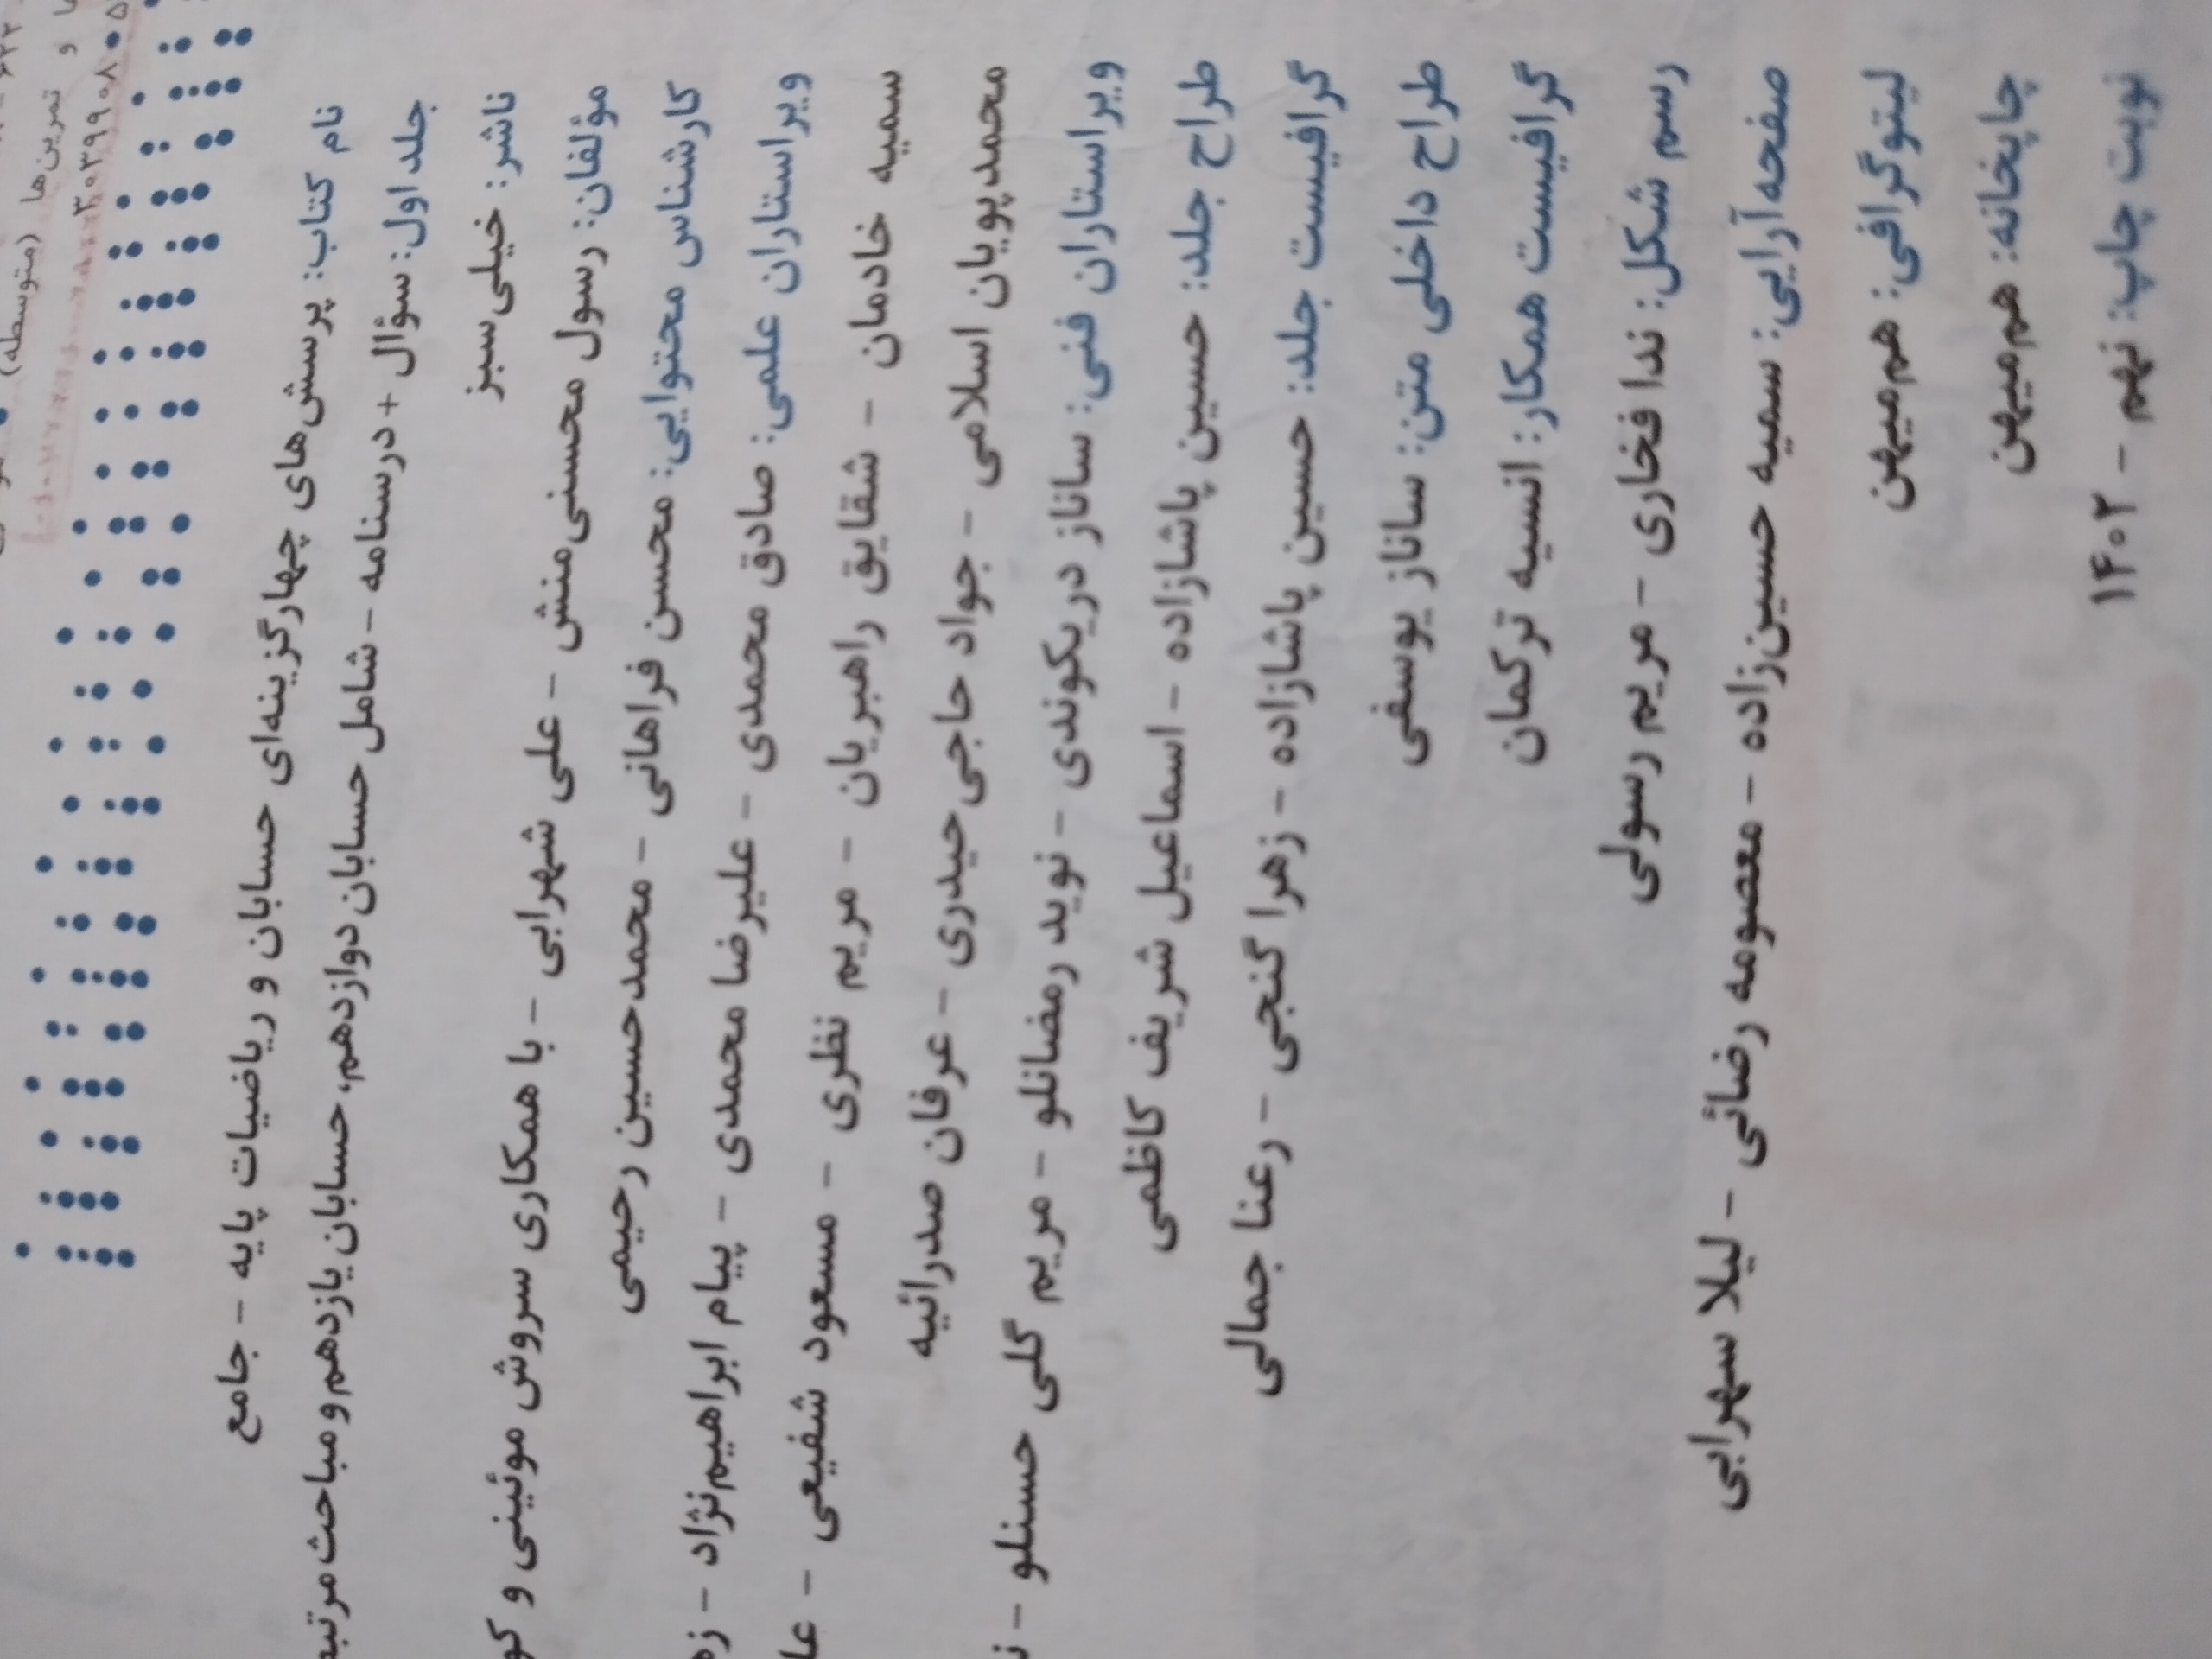 و تمرین‌ها (متوسطه)
نام کتاب: پرسش‌های چهارگزینه‌ای حسابان و ریاضیات پایه - جامع
جلد اول: سؤال + درسنامه - شامل حسابان دوازدهم، حسابان یازدهم و مباحث
ناشر: خیلی سبز
مؤلفان: رسول محسنی‌منش - علی شهرابی - با همکاری سروش موئینی و
کارشناس محتوایی: محسن فراهانی - محمدحسین رحیمی
ویراستاران علمی: صادق محمدی - علیرضا محمدی - پیام ابراهیم‌نژاد -
سمیه خادمان - شقایق راهبریان - مریم نظری - مسعود شفیعی -
محمدپویان اسلامی - جواد حاجی‌حیدری - عرفان صدرائیه
ویراستاران فنی: ساناز دریکوندی - نوید رمضانلو - مریم گلی حسنلو -
طراح جلد: حسین پاشازاده - اسماعیل شریف کاظمی
گرافیست جلد: حسین پاشازاده - زهرا گنجی - رعنا جمالی
طراح داخلی متن: ساناز یوسفی
گرافیست همکار: انسیه ترکمان
رسم شکل: ندا فخاری - مریم رسولی
صفحه‌آرایی: سمیه حسین‌زاده - معصومه رضائی - لیلا سهرابی
لیتوگرافی: هم‌میهن
چاپخانه: هم‌میهن
نوبت چاپ: نهم - ۱۴۰۲